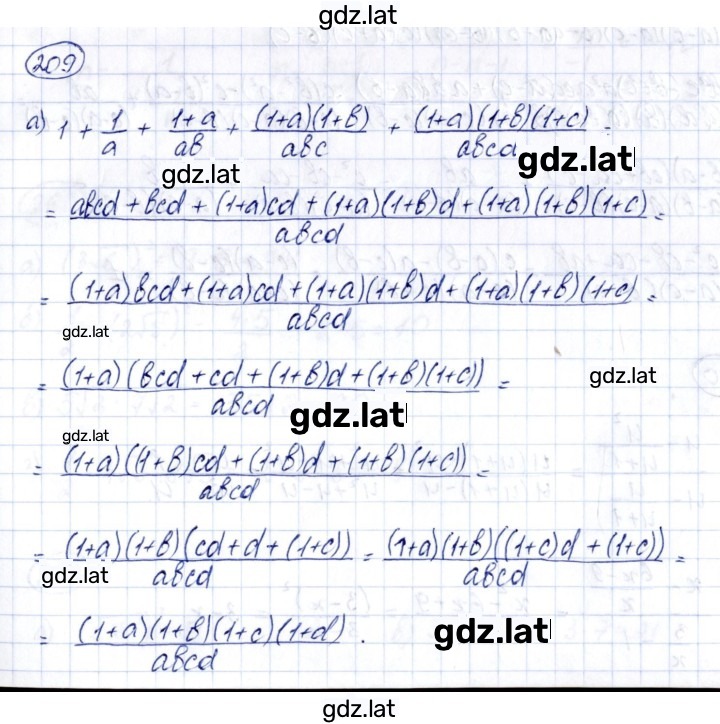 gdz.lat
209
а) 1 + 1/a + (1+a)/(ab) + ((1+a)(1+b))/(abc) + ((1+a)(1+b)(1+c))/(abcd) =
gdz.lat
gdz.lat
= (abcd + bcd + (1+a)cd + (1+a)(1+b)d + (1+a)(1+b)(1+c))/(abcd) =
= ((1+a)bcd + (1+a)cd + (1+a)(1+b)d + (1+a)(1+b)(1+c))/(abcd) =
gdz.lat
= ((1+a)(bcd + cd + (1+b)d + (1+b)(1+c)))/(abcd) =
gdz.lat
gdz.lat
gdz.lat
= ((1+a)((1+b)cd + (1+b)d + (1+b)(1+c)))/(abcd) =
= ((1+a)(1+b)(cd + d + (1+c)))/(abcd) = ((1+a)(1+b)((1+c)d + (1+c)))/(abcd) =
gdz.lat
= ((1+a)(1+b)(1+c)(1+d))/(abcd).
gdz.lat
gdz.lat